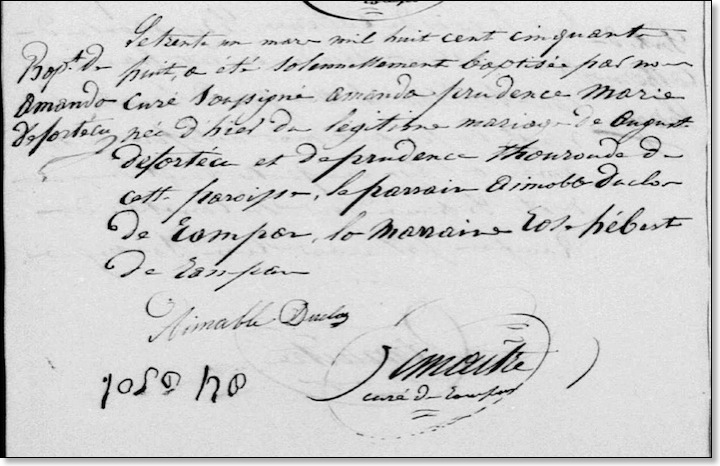 Le trente un mars mil huit cent cinquante
Bapt. de
huit, a été solennellement baptisée par nous
Amanda
curé soussigné amanda prudence Marie
Desfortécu
née d'hier du légitime mariage de august
desfortécu et de prudence thouroude de
cette paroisse, le parrain aimable duclos
de , la Marraine Rose hébert
de
Aimable Duclos
Lemaitre
curé de